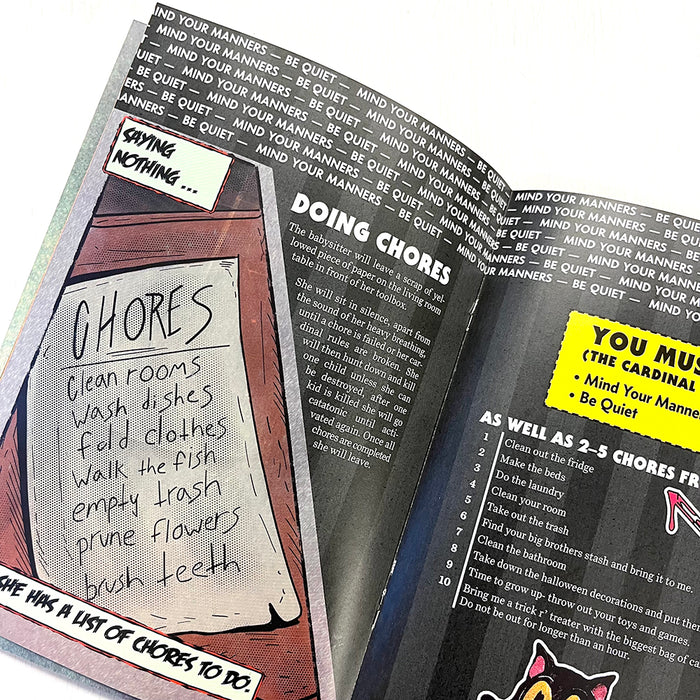 MIND YOUR MANNERS — BE QUIET — MIND YOUR MANNERS — BE QUIET —
MIND YOUR MANNERS — BE QUIET — MIND YOUR MANNERS — BE QUIET
MIND YOUR MANNERS — BE QUIET — MIND YOUR MANNERS — BE QUIET
BE QUIET — MIND YOUR MANNERS — BE QUIET — MIND YOUR MANNERS
MANNERS — BE QUIET — MIND YOUR MANNERS — BE QUIET
SAYING
NOTHING ...
CHORES
Clean rooms
Wash dishes
fold clothes
Walk the fish
empty trash
prune flowers
brush teeth
SHE HAS A LIST OF CHORES TO DO.
DOING CHORES
The babysitter will leave a scrap of yel-
lowed piece of paper on the living room
table in front of her toolbox.
She will sit in silence, apart from
the sound of her heavy breathing,
until a chore is failed or her car-
dinal rules are broken. She
will then hunt down and kill
one child unless she can
be destroyed, after one
kid is killed she will go
catatonic until acti-
vated again. Once all
chores are completed
she will leave.
MIND YOUR MANNERS — BE QUIET
BE QUIET — MIND YOUR MANNERS
MIND YOUR MANNERS — BE QUIET —
BE QUIET — MIND YOUR MANNERS
MIND YOUR MANNERS — BE QUIET
BE QUIET — MIND
YOU MUS
(THE CARDINAL
• Mind Your Manners
• Be Quiet
AS WELL AS 2–5 CHORES FR
1 Clean out the fridge
2 Make the beds
3 Do the laundry
4 Clean your room
5 Take out the trash
6 Find your big brothers stash and bring it to me.
7 Clean the bathroom
8 Take down the halloween decorations and put them
9 Time to grow up- throw out your toys and games.
10 Bring me a trick r' treater with the biggest bag of ca
Do not be out for longer than an hour.